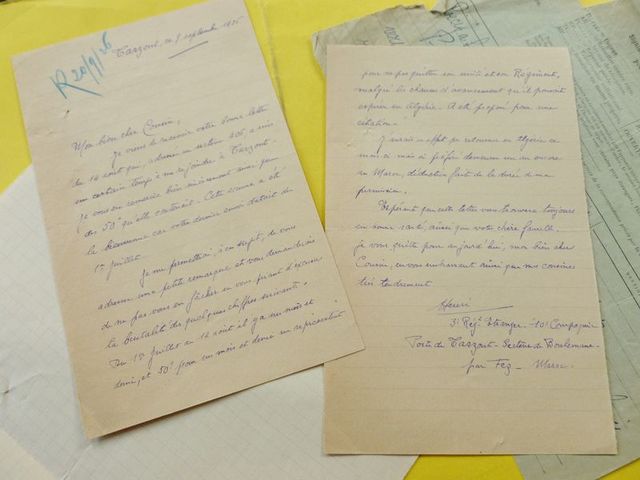 R 20/9/26
Tazzout, ce 9 septembre 1926
Mon bien cher Cousin,
Je viens de recevoir votre bonne lettre
du 14 août qui, adressée au secteur 406, a mis
un certain temps à me rejoindre à Tazzout.
Je vous en remercie bien sincèrement ainsi que
des 50f qu'elle contenait. Cette somme a été
la bienvenue car votre dernier envoi datait du
1er juillet.
Je me permettrai, à ce sujet, de vous
adresser une petite remarque et vous demanderai
de ne pas vous en fâcher en vous priant d'excuser
la brutalité des quelques chiffres suivants.
Du 1er juillet au 14 août il y a un mois et
demi, et 50f pour un mois et demi en représentent
pour ne pas quitter son unité et son Régiment,
malgré les chances d'avancement qu'il pouvait
espérer en Algérie. A été proposé pour une
citation."
J'aurais en effet pu retourner en Algérie ce
mois-ci mais ai préféré demeurer un an encore
au Maroc, déduction faite de la durée d'une
permission.
Espérant que cette lettre vous trouvera toujours
en bonne santé, ainsi que votre chère famille,
je vous quitte pour aujourd'hui, mon bien cher
Cousin, en vous embrassant ainsi que mes cousines
très tendrement
Henri
3e Rég. Etranger - 10e Compagnie
Poste de Tazzout - Secteur de Boulemane
par Fez - Maroc.